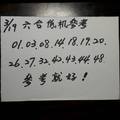 3/19 六合随机参考
01.03.08.14.18.19.20.
26.27.32.42.43.44.48.
参考就好!